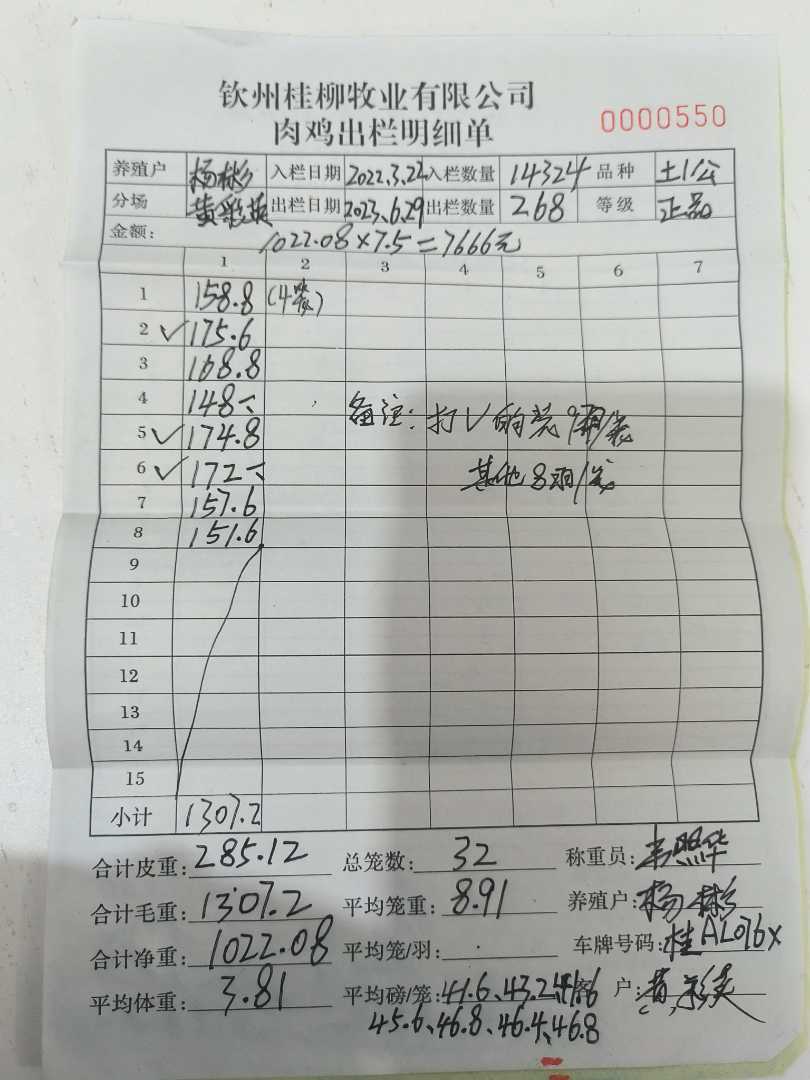 钦州桂柳牧业有限公司
肉鸡出栏明细单
0000550
养殖户 杨彬 入栏日期 2022.3.22 入栏数量 14324 品种 土1/公
分场 黄彩英 出栏日期 2023.6.29 出栏数量 268 等级 正品
金额: 1022.08×7.5=7666元
1 2 3 4 5 6 7
1 158.8 (4笼)
2 ✓ 175.6
3 168.8
4 148
备注: 打✓的
5 ✓ 174.8
6 ✓ 172
其他8羽/笼
7 157.6
8 151.6
9
10
11
12
13
14
15
小计 1307.2
合计皮重: 285.12 总笼数: 32 称重员: 韦照华
合计毛重: 1307.2 平均笼重: 8.91 养殖户: 杨彬
合计净重: 1022.08 平均笼/羽: 车牌号码: 桂AL076X
平均体重: 3.81 平均磅/笼: 41.6、43.2、41.6 客户: 黄彩英
45.6、46.8、46.4、46.8